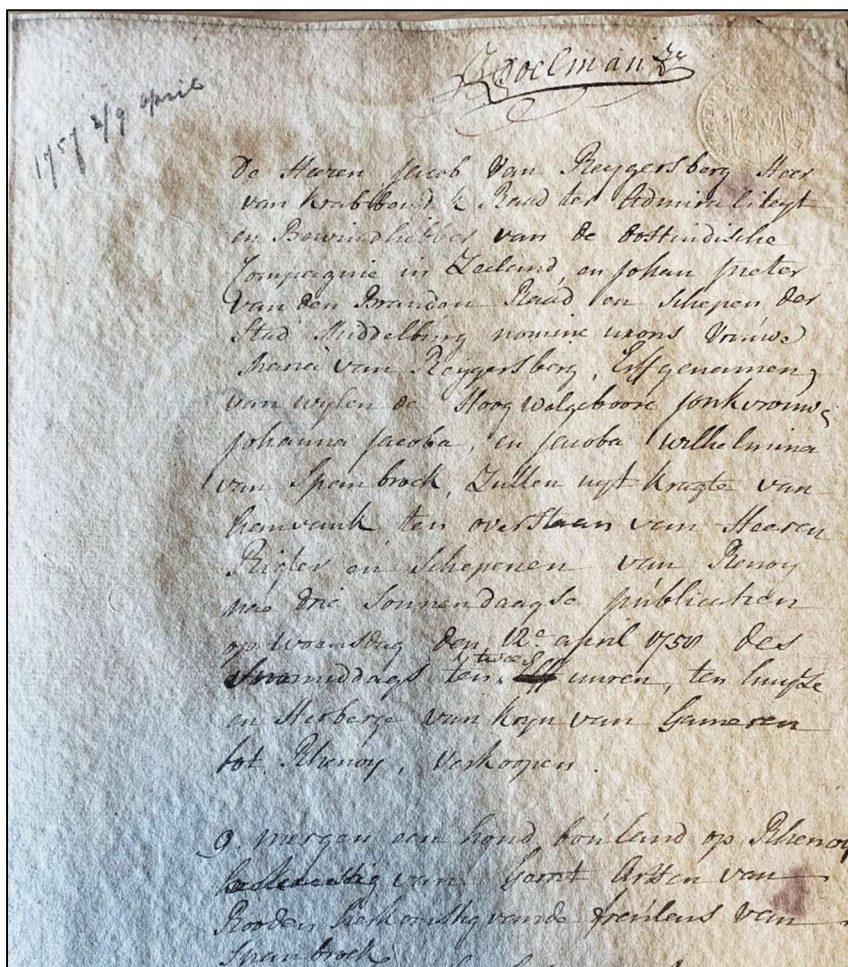 Roelman
1757 2/9 april
De Heeren Jacob van Reygersberg Heer
van Krabbend Raad ter Admiraliteyt
en Bewindhebber van de Oostindische
Compagnie in Zeeland, en Johan Pieter
van den Branden Raad en Schepen der
Stad Middelburg nomine uxoris Vrouwe
Maria van Reygersberg, Erfgenaemen
van wylen de Hoog Welgeboore Jonkvrouwe
Johanna Jacoba, en Jacoba Wilhelmina
van Spanbroek, Zullen uyt kragte van
ten overstaan van Heeren
Rigter en Schepenen van Renoy
nae drie Sonnendaagse publicatien
op Woensdag den 12e april 1758 des
middags ten twee uuren, ten huyse
en Herberge van Kryn van Gameren
tot Rhenoy, Verkoopen.
9. mergen een hond bouland op Rhenoy
van Gerrit Artsen van
Rooden herkomstig van de freulens van
Spanbroek